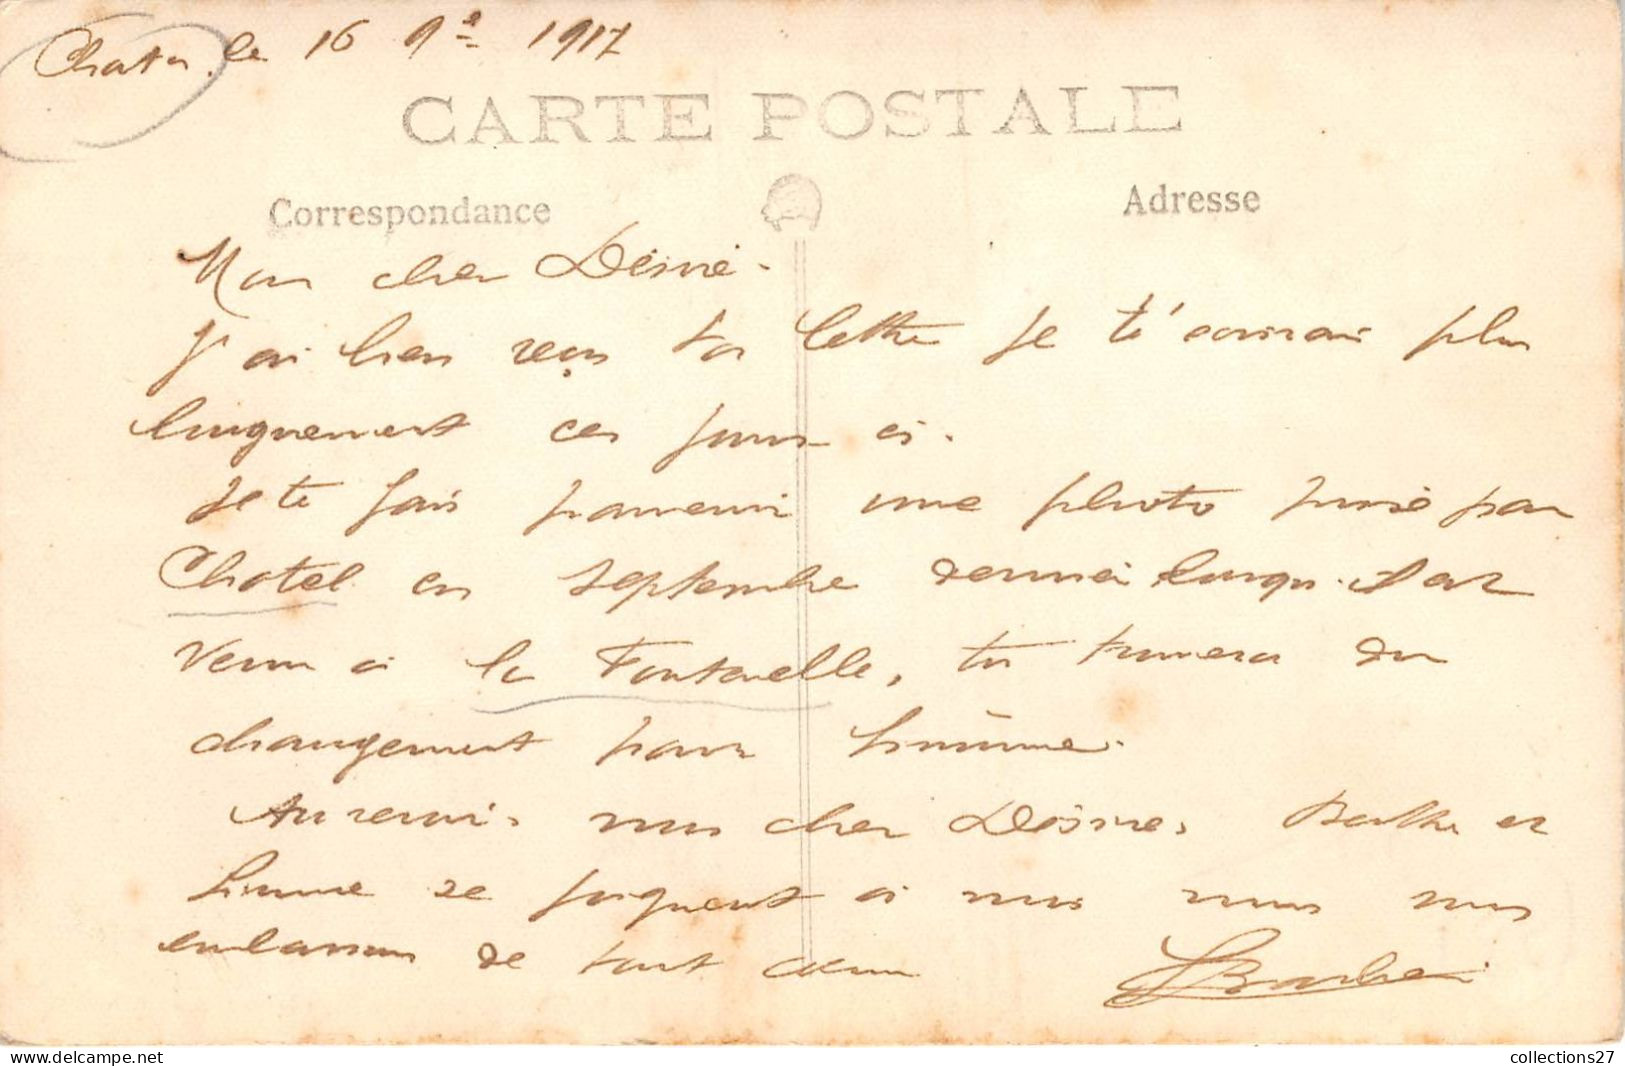 Chatou, le 16 9e 1917
CARTE POSTALE
Correspondance
Adresse
Mon cher Désiré.
J'ai bien reçu ta lettre je t'écrirai plus
longuement ces jours ci.
Je te fais parvenir une photo prise par
Chatel en septembre dernier lorsqu'il est
venu à la Fontenelle, tu trouvera du
changement pour Simonne.
Au revoir mon cher Désiré. Berthe et
Simone se joignent à moi nous nous
embrassons de tout coeur
LBarbier
collections27